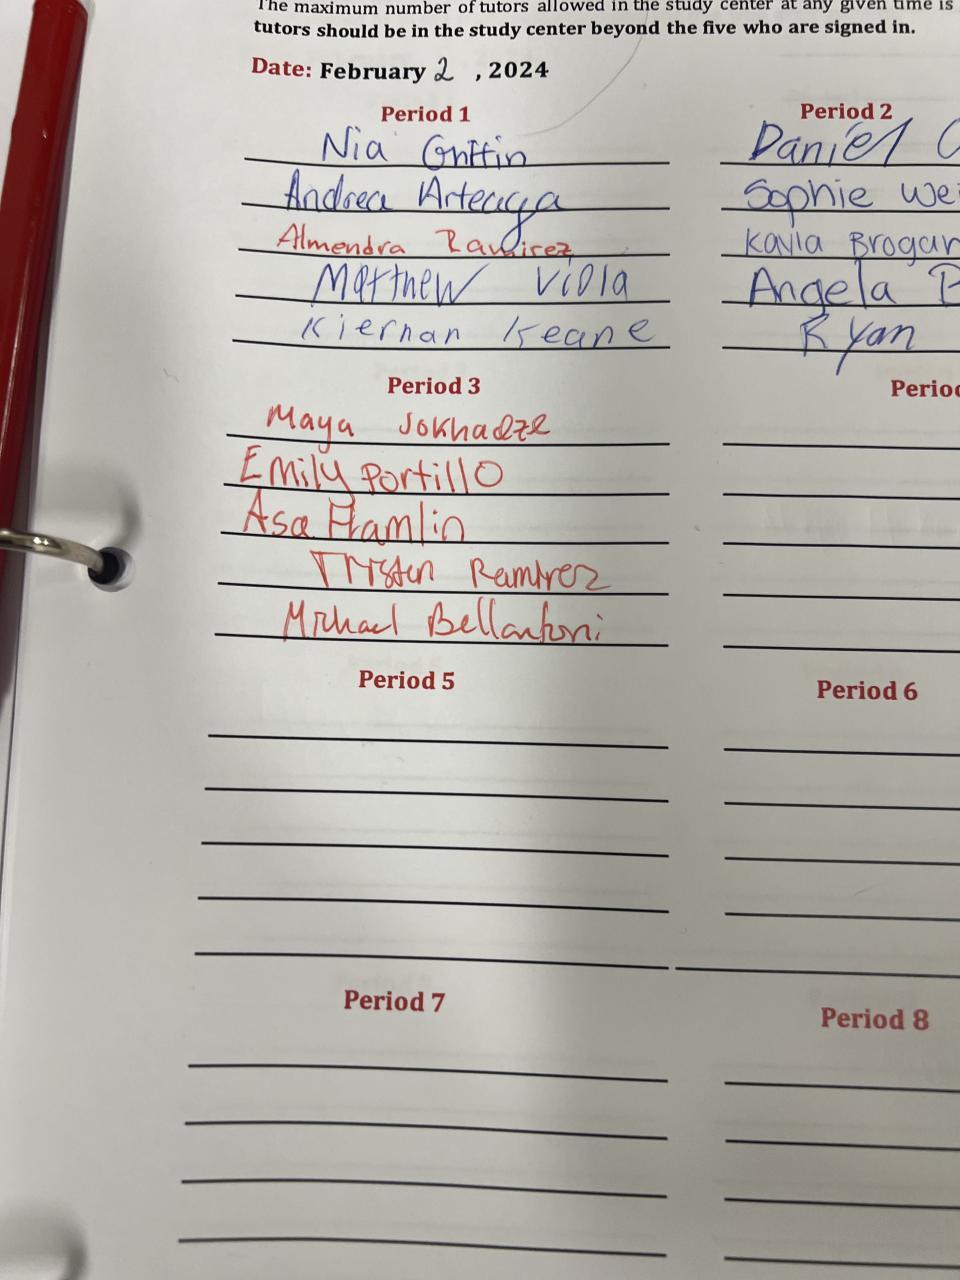 The maximum number of tutors allowed in the study center at any given time is
tutors should be in the study center beyond the five who are signed in.
Date: February 2 , 2024
Period 1
Nia Griffin
Andrea Arteaga
Almendra Ramirez
Matthew Viola
Kiernan Keane
Period 2
Daniel
Sophie
Kayla Brogan
Angela
Ryan
Period 3
Maya Jokhadze
Emily Portillo
Asa Hamlin
Trysten Ramirez
Michael Bellantoni
Period 5
Period 6
Period 7
Period 8